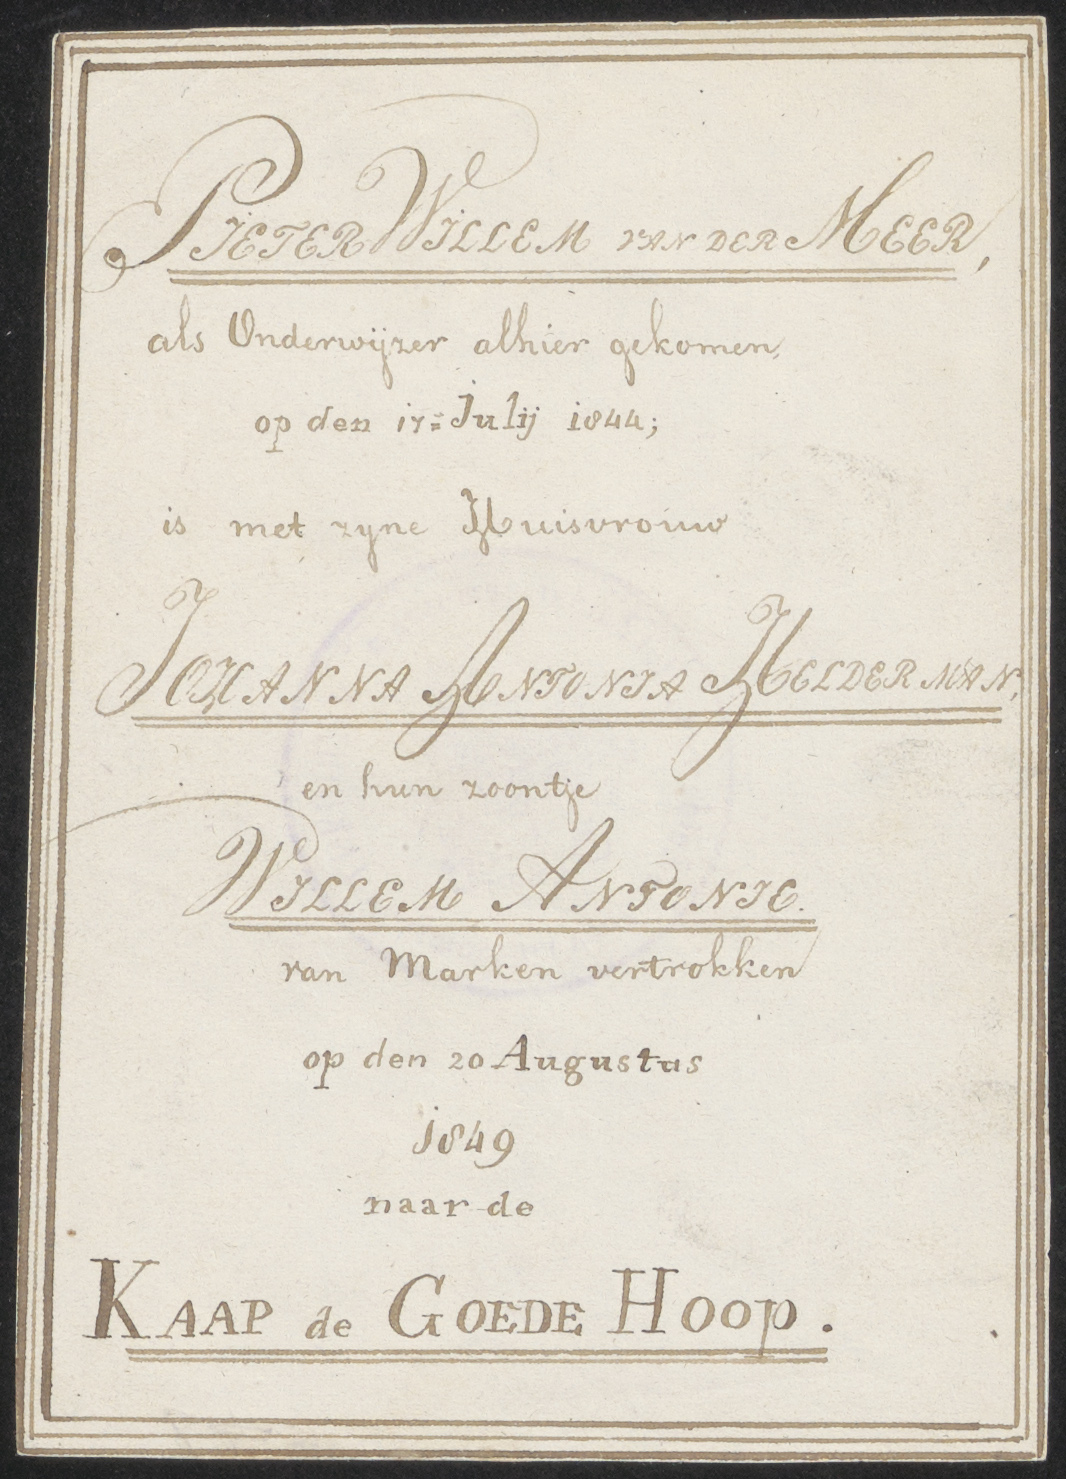 PIETER WILLEM VAN DER MEER,
als Onderwijzer alhier gekomen,
op den 17= Julij 1844;
is met zyne Huisvrouw
JOHANNA ANTONIA HELDERMAN,
en hun zoontje
WILLEM ANTONIE.
van Marken vertrokken
op den 20 Augustus
1849
naar de
KAAP de GOEDE HOOP.